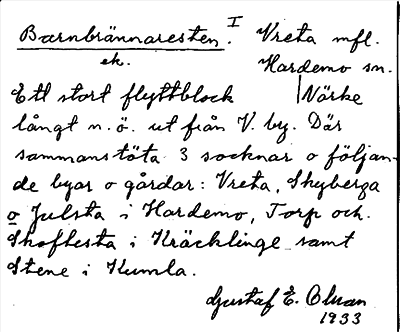 Barnbrännaresten. I Vreta mfl.
ek. Hardemo sn.
Ett stort flyttblock | Närke
långt n.ö. ut från V. by. Där
sammanstöta 3 socknar o följan-
de byar o gårdar: Vreta, Skyberga
o Julsta i Hardemo, Torp och
Skoftesta i Kräcklinge samt
Stene i Kumla.
Gustaf E. Olsan
1933